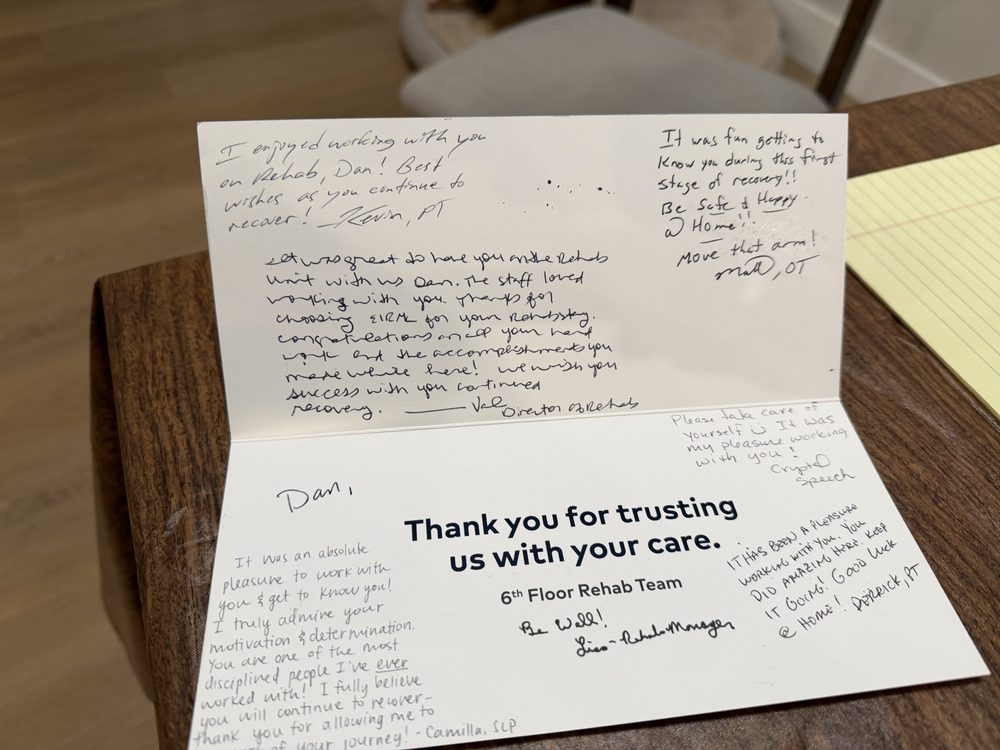 I enjoyed working with you
on Rehab, Dan! Best
wishes as you continue to
recover! Kevin, PT
It was fun getting to
know you during this first
stage of recovery!!
Be Safe & Happy
@ Home!!
Move that arm!
Matt, OT
It was great to have you on the Rehab
unit with us Dan. The staff loved
working with you. Thanks for
choosing EIRMC for your Rehab stay.
Congratulations on all your hard
work and the accomplishments you
made while here! We wish you
success with you continued
recovery. — Val
Director of Rehab
Please take care of
yourself It was
my pleasure working
with you!
Crystal
Speech
Dan,
Thank you for trusting
us with your care.
6th Floor Rehab Team
Be Well!
Lisa - Rehab Manager
It was an absolute
pleasure to work with
you & get to know you!
I truly admire your
motivation & determination.
You are one of the most
disciplined people I've ever
worked with! I fully believe
you will continue to recover -
thank you for allowing me to
of your journey! - Camilla, SLP
IT HAS BEEN A PLEASURE
WORKING WITH YOU. YOU
DID AMAZING HERE. KEEP
IT GOING! GOOD LUCK
@ HOME! DERRICK, PT